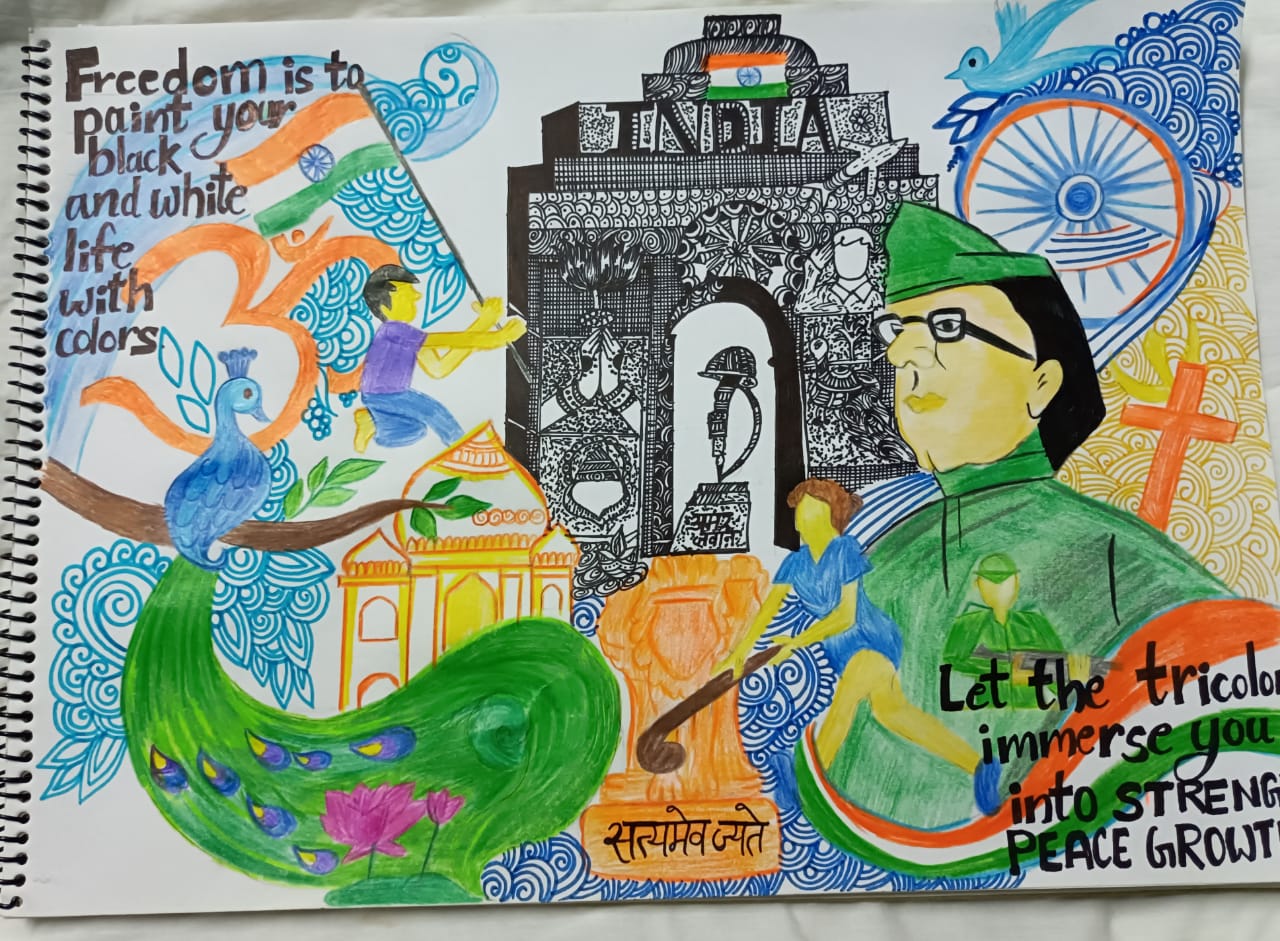 Freedom is to
paint your
black
and white
life
with
colors
INDIA
अमर
जवान
सत्यमेव जयते
Let the tricolor
immerse you
into STRENG
PEACE GROWT